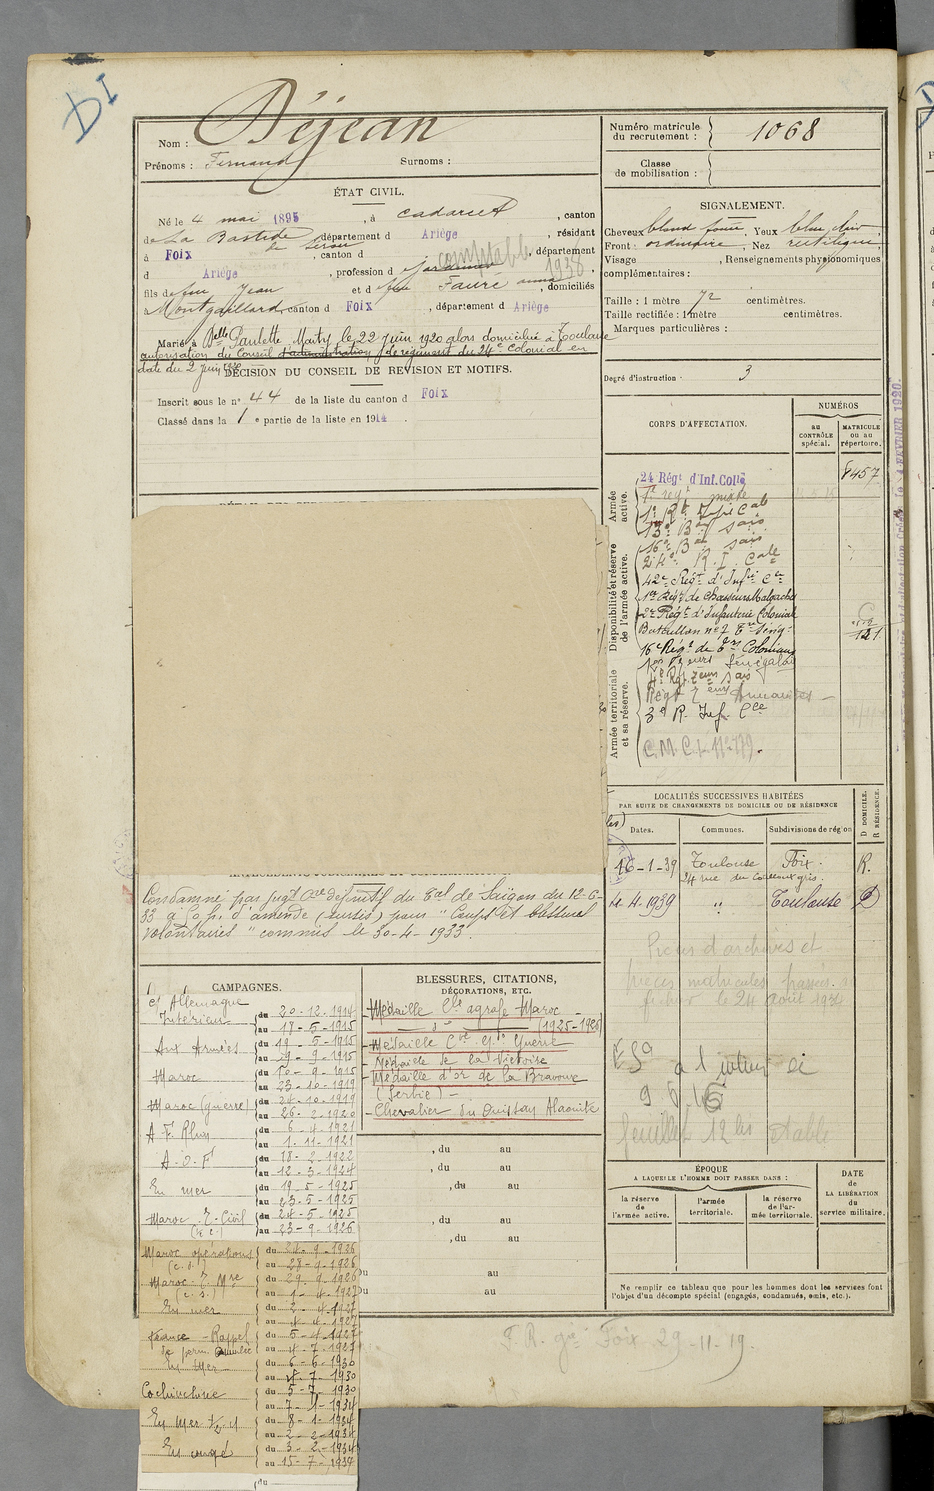 DI
Nom : Déjean
Prénoms : Fernand Surnoms :
ÉTAT CIVIL.
Né le 4 mai 1895, à Cadarcet, canton
de La Bastide de Sérou, département d Ariège, résidant
à Foix, canton d , département
d Ariège, profession d jardinier comptable 1938
fils de feu Jean et d feu Fauré anna, domiciliés
à Montgaillard, canton d Foix, département d Ariège
Marié à Delle Paulette Marty le 22 juin 1920 alors domicilié à Toulouse
autorisation du Conseil d'administration du régiment du 24e Colonial en
date du 2 juin 1920
DÉCISION DU CONSEIL DE REVISION ET MOTIFS.
Inscrit sous le n° 44 de la liste du canton d Foix
Classé dans la 1 e partie de la liste en 1914 .
Condamné par jugt Cre définitif du Tal de Saïgon du 12-6-
33 à 50 f. d'amende (sursis) pour "Coups et blessures
volontaires" commis le 30-4-1933.
CAMPAGNES.
Ct Allemagne
Intérieur du 20-12-1914
au 18-5-1915
Aux Armées du 19-5-1915
au 9-9-1915
Maroc du 10-9-1915
au 23-10-1919
Maroc (guerre) du 24-10-1919
au 26-2-1920
A F. Rhin du 6-4-1921
au 1-11-1921
A.O.F du 18-2-1922
au 12-3-1924
En mer du 19-5-1925
au 23-5-1925
Maroc T. Civil du 24-5-1925
au 23-9-1926
Maroc opérations du 24-9-1926
(c.d.) au 28-9-1926
Maroc T. Mre du 29-9-1926
(c.s.) au 1-4-1927
En mer du 2-4-1927
au 4-4-1927
France - Rappel du 5-4-1927
au 4-7-1927
En Mer du 6-6-1930
au 4-7-1930
Cochinchine du 5-7-1930
au 7-1-1934
En Mer du 8-1-1934
au 2-2-1934
En congé du 3-2-1934
au 15-7-1934
du
BLESSURES, CITATIONS,
DÉCORATIONS, ETC.
Médaille Cle agrafe Maroc -
- d° - (1925-1926)
- Médaille Cve Gde Guerre
- Médaille de la Victoire
- Médaille d'or de la Bravoure
(Serbie) -
- Chevalier du Ouissam Alaouite
, du au
, du au
, du au
, du au
, du au
du au
du au
Numéro matricule
du recrutement : 1068
Classe
de mobilisation :
SIGNALEMENT.
Cheveux blond foncé, Yeux bleu clair,
Front ordinaire, Nez rectiligne,
Visage , Renseignements physionomiques
complémentaires :
Taille : 1 mètre 72 centimètres.
Taille rectifiée : 1 mètre centimètres.
Marques particulières :
Degré d'instruction : 3
CORPS D'AFFECTATION.
NUMÉROS
au
CONTRÔLE
spécial.
MATRICULE
ou au
répertoire.
Armée
active.
Disponibilité et réserve
de l'armée active.
Armée territoriale
et sa réserve.
24 Régt d'Inf. Colle 8457
1er regt mixte
1er Rt Inf. Cale
13e Bon Sais
16e Bon Sais
24e R. I. Cale
42e Régt d'Infie Cle
1er Régt de Chasseurs Malgaches
2e Régt d'Infanterie Coloniale
Bataillon n°7 Tirs Sénég. 121
16e Régt de Tirs Coloniaux
4e Rgt Teurs Sais
Régt Teurs Annamites -
3e R. Inf. Cce
C.M.C.I. n° 179.
LOCALITÉS SUCCESSIVES HABITÉES
PAR SUITE DE CHANGEMENTS DE DOMICILE OU DE RÉSIDENCE
Dates. Communes. Subdivisions de région D DOMICILE. R RÉSIDENCE.
16-1-39 Toulouse Foix. R.
4-4-1939 " Toulouse D
Pièces d'archives et
pièces matricules passées au
fichier le 24 août 1936
ÉPOQUE
A LAQUELLE L'HOMME DOIT PASSER DANS :
la réserve
de l'armée active.
l'armée
territoriale.
la réserve
de l'ar-
mée territoriale.
DATE
de
LA LIBÉRATION
du
service militaire.
Ne remplir ce tableau que pour les hommes dont les services font
l'objet d'un décompte spécial (engagés, condamnés, omis, etc.).
F. R. gie Foix 29-11-19.